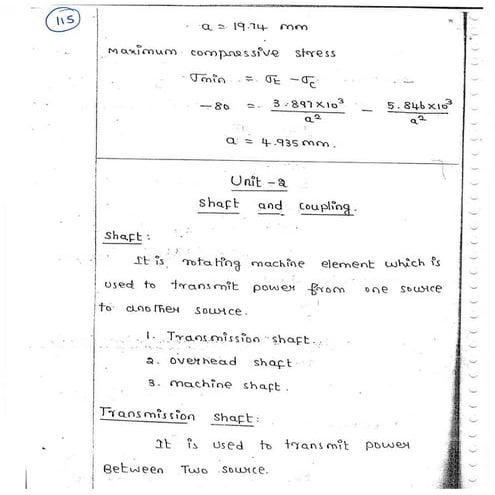 115
a = 19.74 mm
Maximum compressive stress
σmin = σt - σc
-80 = 3.897×10³/a² - 5.846×10³/a²
a = 4.935mm.
Unit-2
Shaft and coupling.
Shaft:
It is rotating machine element which is
used to transmit power from one source
to another source.
1. Transmission shaft.
2. overhead shaft
3. machine shaft.
Transmission shaft:
It is used to transmit power
Between Two source.